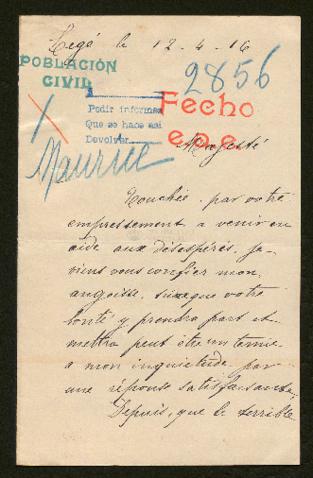 Legé le 12-4-16
POBLACIÓN
CIVIL
2856
Pedir informes
Que se hace así
Devolver
Fecho
1
Maurice
Majesté
Touchée par votre
empressement a venir en
aide aux désespérés, je
viens vous confier mon
angoisse, sure que votre
bonté y prendra part et
mettra peut être un terme
a mon inquietude par
une réponse satisfaisante,
Depuis, que le terrible